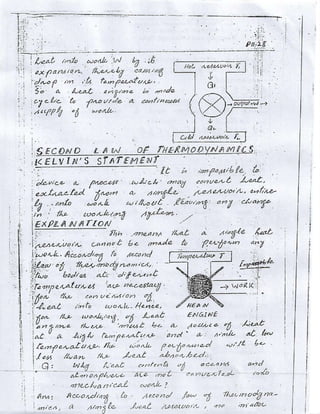 Pg-28
heat into work W by its
expansion, thereby causing
drop in its temperature.
So a heat engine is made
cyclic to provide a continuous
supply of work.
Hot reservoir T₁
Q₁
output
Q₂
Cold reservoir T₂
SECOND LAW OF THERMODYNAMICS
KELVIN'S STATEMENT
It is impossible to
device a process which may convert heat
extracted from a single reservoir, entire
ly into work without leaving any change
in the working system.
EXPLANATION
This means that a single heat
reservoir cannot be made to perform any
work. According to second
law of thermodynamics,
two bodies at different
temperatures are necessary
for the conversion of
heat into work. Hence,
for the working of heat
engine there must be a source of heat
at a high temperature and a sink at low
temperature. the work performed will be
less than the heat absorbed.
Temperature T
Impossible
→ WORK
HEAT
ENGINE
Q: Why heat contents of oceans and
atmosphere are not converted into
mechanical work?
Ans: According to second law of thermodyna-
mics, a single heat reservoir, no matter